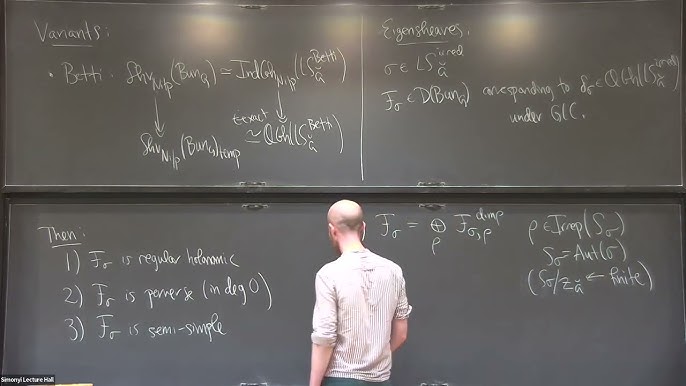 Variants:
• Betti: Shv_Nilp(Bun_G) ≃ IndCoh_Nilp(LS_Ğ^Betti)
Shv_Nilp(Bun_G)_temp ≃ QCoh(LS_Ğ^Betti)
t-exact
Eigensheaves:
σ ∈ LS_Ğ^irred
F_σ ∈ D(Bun_G) corresponding to δ_σ ∈ QCoh(LS_Ğ^irred)
under GLC.
Then:
1) F_σ is regular holonomic
2) F_σ is perverse (in deg 0)
3) F_σ is semi-simple
F_σ = ⊕_ρ F_σ,ρ^dim ρ
ρ ∈ Irrep(S_σ)
S_σ = Aut(σ)
(S_σ/Z_Ğ ← finite)
Simonyi Lecture Hall